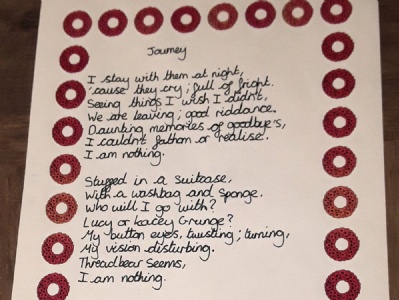 Journey
I stay with them at night,
'cause they cry; full of fright.
Seeing things I wish I didn't,
We are leaving; good riddance.
Daunting memories of goodbye's,
I couldn't fathom or realise.
I am nothing.
Stugged in a suitcase,
With a washbag and sponge.
Who will I go with?
Lucy or Kacey Grunge?
My button eyes, twisting; turning,
My vision disturbing.
Threadbear seems,
I am nothing.